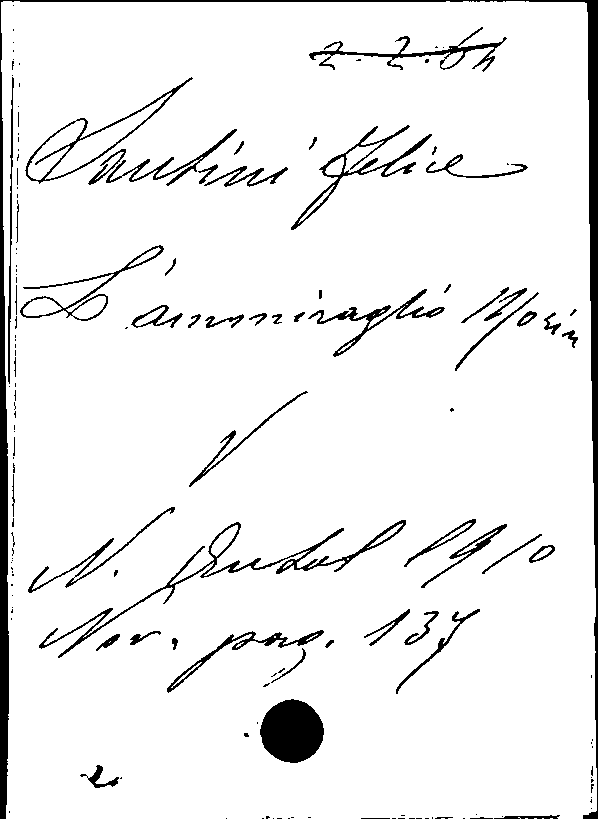 2.2.64
Santini Felice
L'ammiraglio Morin
V
N. Antol 1910
Nov. pag. 137
2.